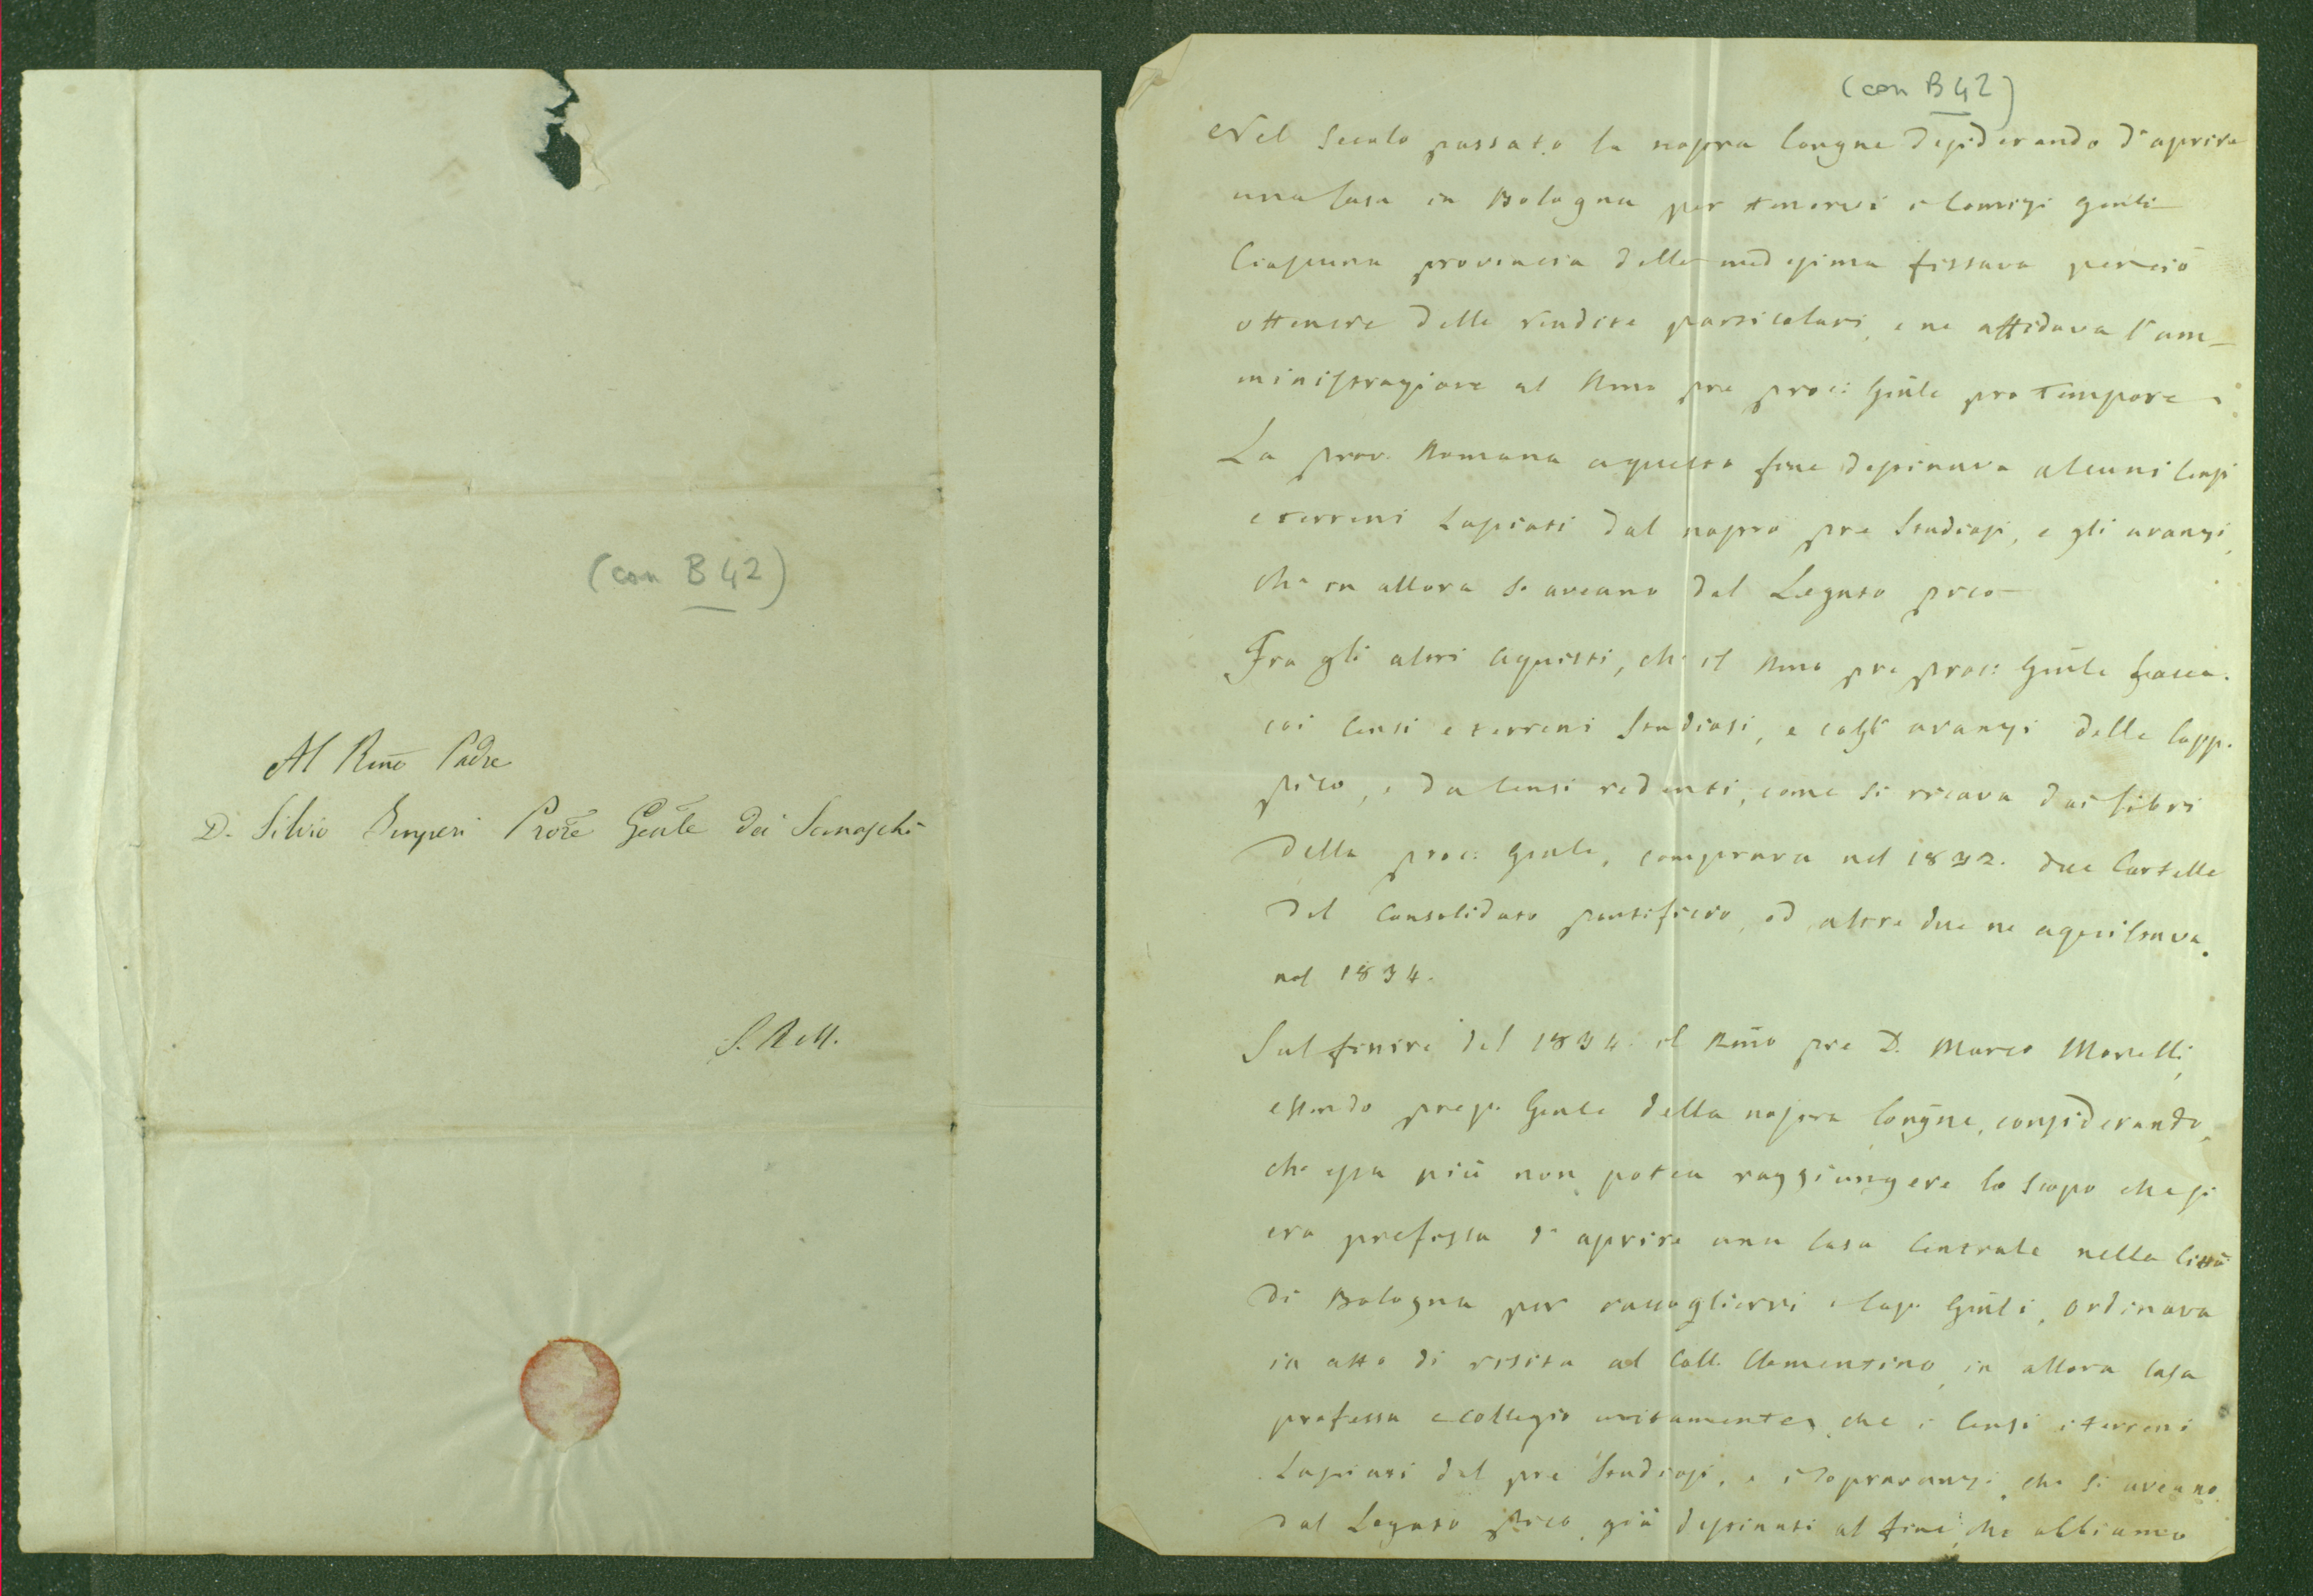 (con B 42)
Al Rmo Padre
D. Silvio Imperi Prore Gēnle dei Somaschi
S. R. M.
(con B 42)
Nel Secolo passato la nostra Congne desiderando d'aprire
una Casa in Bologna per tenervi i Comizi Genli
Ciascuna provincia della medesima fissava perciò
ottenere delle rendite particolari, e ne affidava l'am-
ministrazione al Rmo pre proc: Gēnle pro tempore.
La prov. Romana a questo fine destinava alcuni Censi
e terreni lasciati dal nostro pre Studiosi, e gli avanzi,
che in allora si aveano dal Legato pico
Fra gli altri acquisti, che il Rmo pre proc: Gēnle facea
coi Censi e terreni Studiosi, e cogli avanzi della Capp.
pico, e da Censi redenti, come si ricava dai libri
della proc: Genle, comprava nel 1832. due Cartelle
del Consolidato pontificio, ed altre due ne aquistava
nel 1834.
Sul finire del 1834. il Rmo pre D. Marco Morelli,
essendo prep. Genle della nostra Congne, considerando,
che essa più non potea raggiungere lo scopo che si
era prefissa d'aprire una Casa Centrale nella Città
di Bologna per raccogliervi i Cap. Gēnli, ordinava
in atto di visita al Coll. Clementino, in allora Casa
professa e collegio unitamente, che i Censi i terreni
Lasciati dal pre Studiosi, e i sopravanzi, che si aveano
dal Legato pico, già destinati al fine che abbiamo